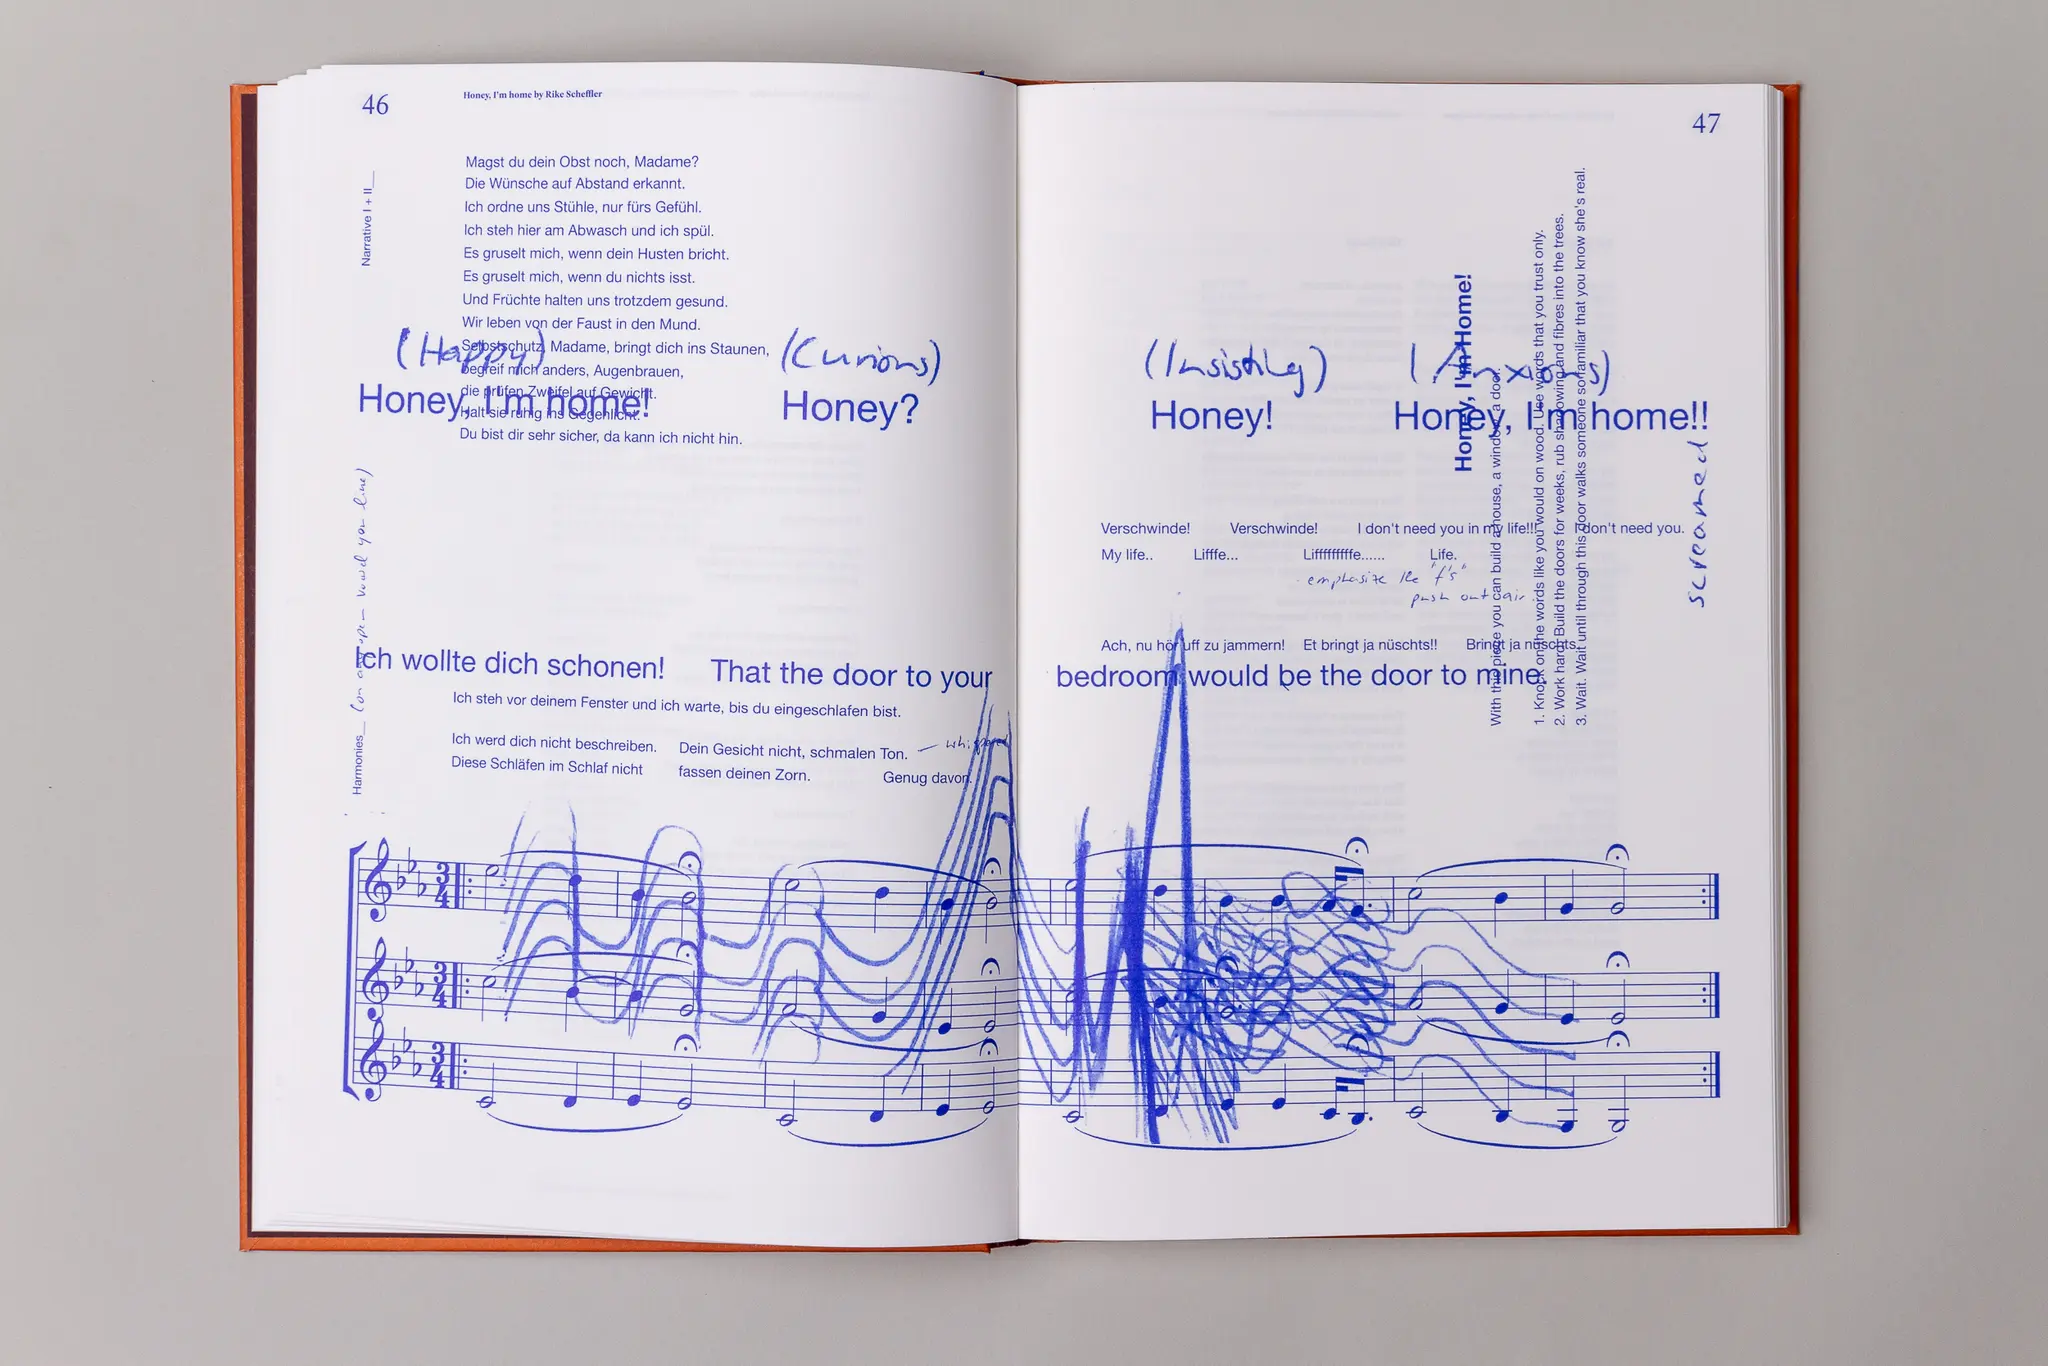 46
Honey, I'm home by Rike Scheffler
Narrative I + II__
Magst du dein Obst noch, Madame?
Die Wünsche auf Abstand erkannt.
Ich ordne uns Stühle, nur fürs Gefühl.
Ich steh hier am Abwasch und ich spül.
Es gruselt mich, wenn dein Husten bricht.
Es gruselt mich, wenn du nichts isst.
Und Früchte halten uns trotzdem gesund.
Wir leben von der Faust in den Mund.
Selbstschutz, Madame, bringt dich ins Staunen,
begreif mich anders, Augenbrauen,
die prüfen Zweifel auf Gewicht.
Halt sie ruhig ins Gegenlicht.
Du bist dir sehr sicher, da kann ich nicht hin.
(Happy)
Honey, I'm home!
(Curious)
Honey?
Harmonies__ (on any open vowel you like)
Ich wollte dich schonen! That the door to your
Ich steh vor deinem Fenster und ich warte, bis du eingeschlafen bist.
Ich werd dich nicht beschreiben. Dein Gesicht nicht, schmalen Ton. — whispered
Diese Schläfen im Schlaf nicht fassen deinen Zorn. Genug davon.
3
4
3
4
3
4
47
(Insisting)
Honey!
(Anxious)
Honey, I'm home!!
screamed
Verschwinde! Verschwinde! I don't need you in my life!!! I don't need you.
My life.. Lifffe... Lifffffffffe...... Life.
emphasize the "f's"
push out air
Ach, nu hör uff zu jammern! Et bringt ja nüschts!! Bringt ja nüschts.
bedroom would be the door to mine.
Honey, I'm Home!
With this piece you can build a house, a window, a door.
1. Knock on the words like you would on wood. Use words that you trust only.
2. Work hard. Build the doors for weeks, rub shadowing and fibres into the trees.
3. Wait. Wait until through this door walks someone so familiar that you know she's real.